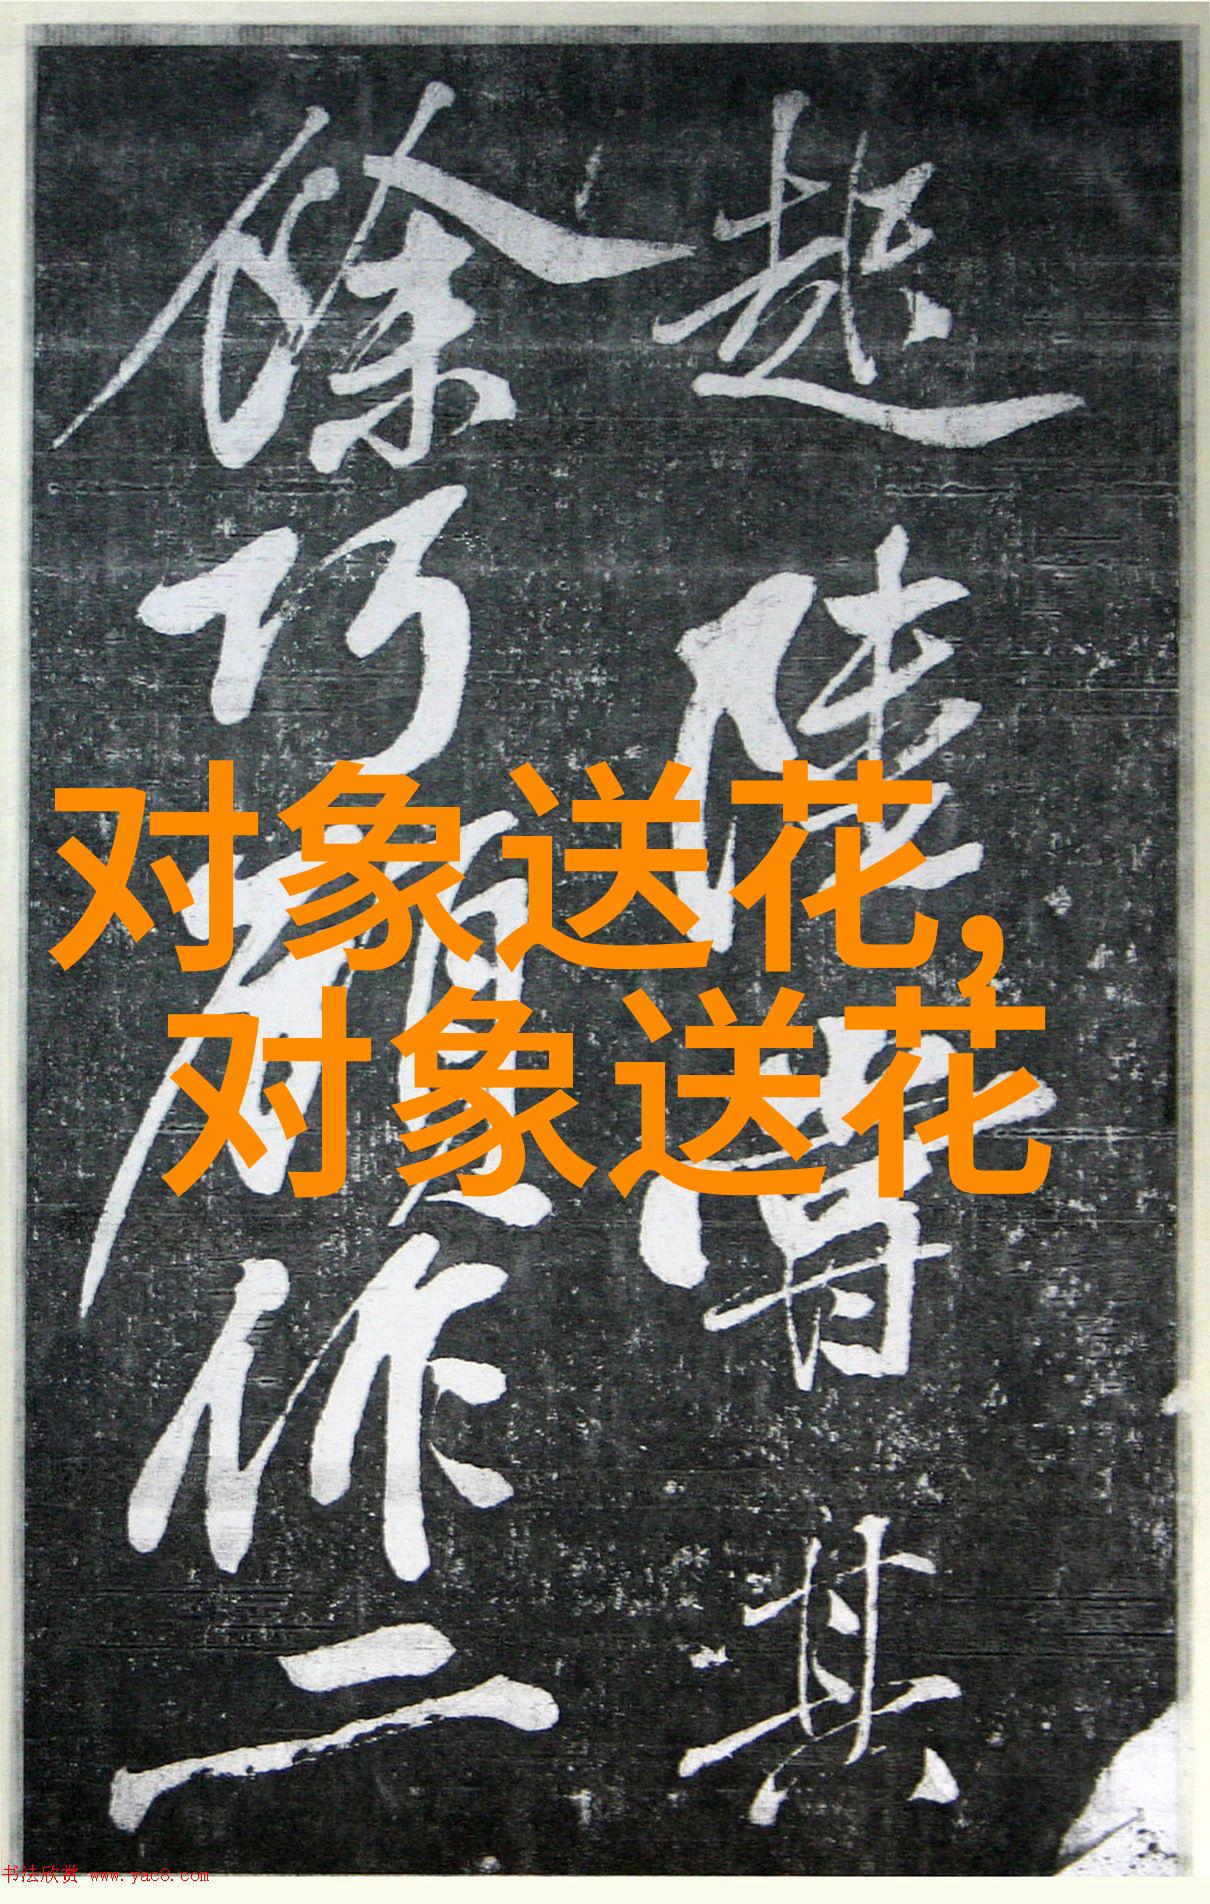 陸其
巧作二
对象送花,
对象送花
书法欣赏 www.yac8.com